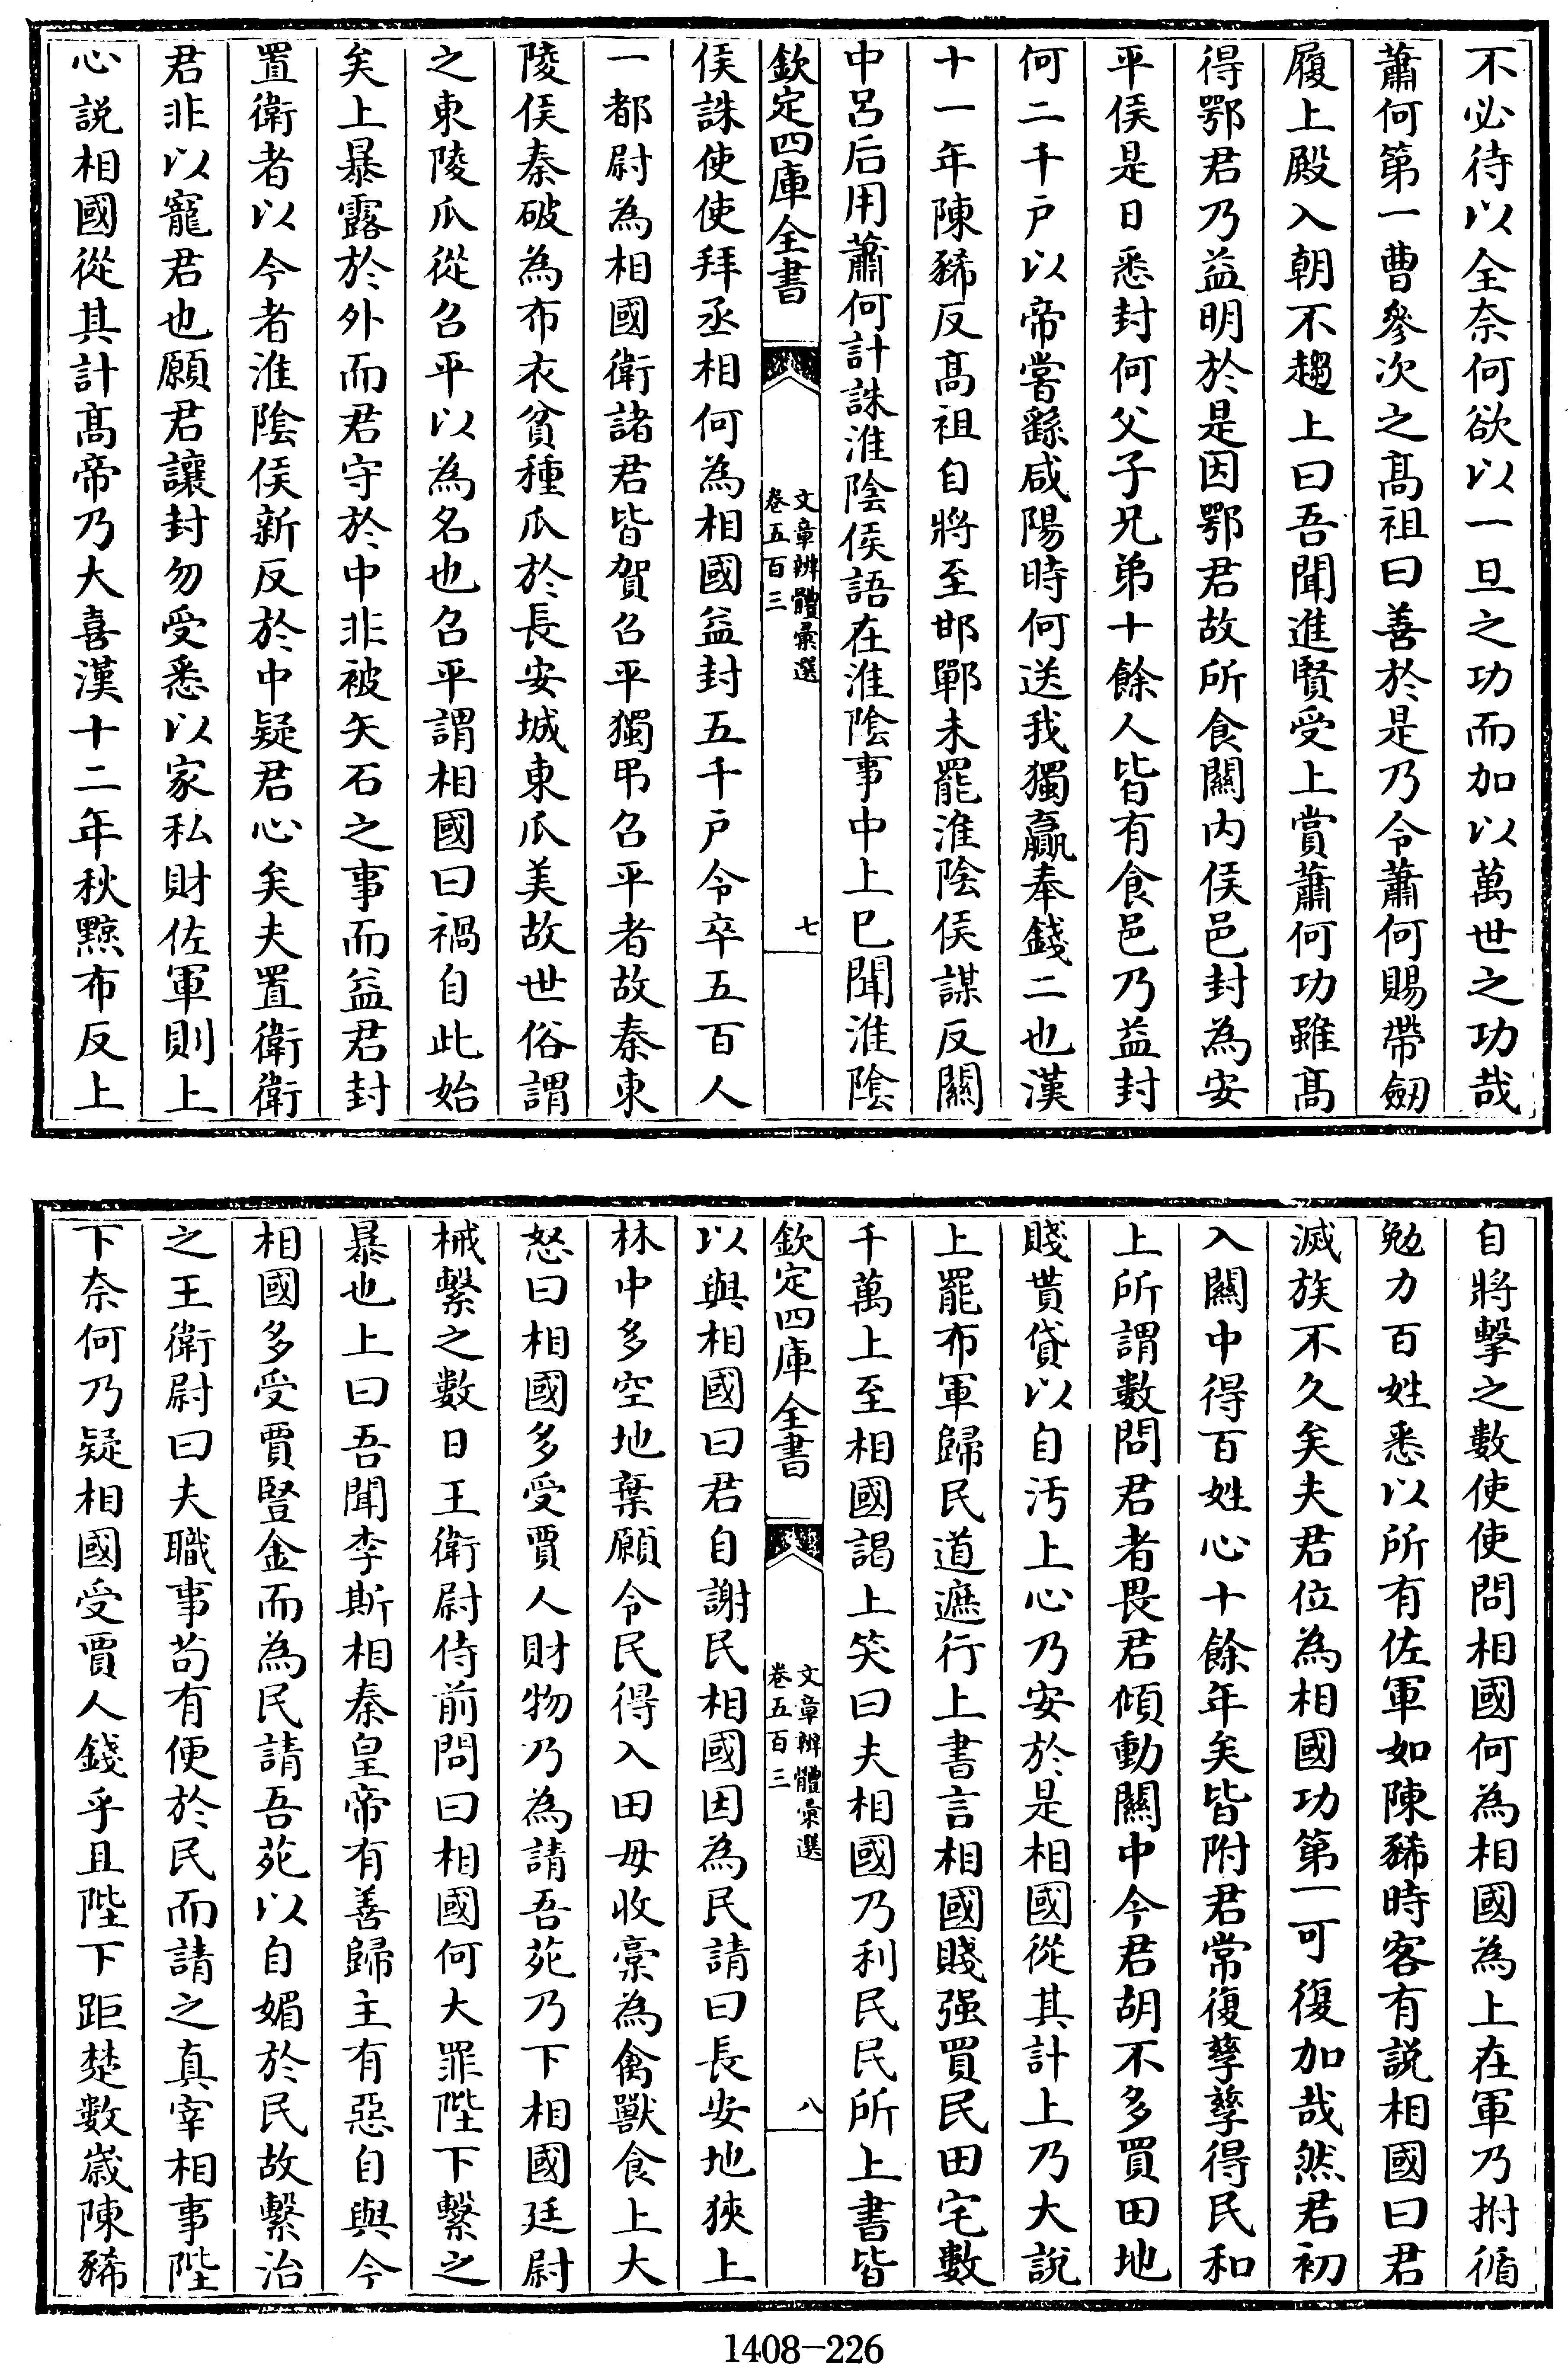 不必待以全奈何欲以一旦之功而加以萬世之功哉
蕭何第一曹參次之髙祖曰善於是乃令蕭何賜帶劒
履上殿入朝不趨上曰吾聞進賢受上賞蕭何功雖髙
得鄂君乃益明於是因鄂君故所食關内侯邑封為安
平侯是日悉封何父子兄弟十餘人皆有食邑乃益封
何二千户以帝嘗繇咸陽時何送我獨贏奉錢二也漢
十一年陳豨反髙祖自將至邯鄲未罷淮陰侯謀反關
中呂后用蕭何計誅淮陰侯語在淮陰事中上已聞淮陰
欽定四庫全書
文章辨體彙選
卷五百三
七
侯誅使使拜丞相何為相國益封五千户令卒五百人
一都尉為相國衛諸君皆賀召平獨弔召平者故秦東
陵侯秦破為布衣貧種瓜於長安城東瓜美故世俗謂
之東陵瓜從召平以為名也召平謂相國曰禍自此始
矣上暴露於外而君守於中非被矢石之事而益君封
置衛者以今者淮陰侯新反於中疑君心矣夫置衛衛
君非以寵君也願君讓封勿受悉以家私財佐軍則上
心説相國從其計髙帝乃大喜漢十二年秋黥布反上
自將擊之數使使問相國何為相國為上在軍乃拊循
勉力百姓悉以所有佐軍如陳豨時客有説相國曰君
滅族不久矣夫君位為相國功第一可復加哉然君初
入關中得百姓心十餘年矣皆附君常復孳孳得民和
上所謂數問君者畏君傾動關中今君胡不多買田地
賤貰貸以自汚上心乃安於是相國從其計上乃大説
上罷布軍歸民道遮行上書言相國賤强買民田宅數
千萬上至相國謁上笑曰夫相國乃利民民所上書皆
欽定四庫全書
文章辨體彙選
卷五百三
八
以與相國曰君自謝民相國因為民請曰長安地狹上
林中多空地棄願令民得入田毋收稾為禽獸食上大
怒曰相國多受賈人財物乃為請吾苑乃下相國廷尉
械繫之數日王衛尉侍前問曰相國何大罪陛下繫之
暴也上曰吾聞李斯相秦皇帝有善歸主有惡自與今
相國多受賈豎金而為民請吾苑以自媚於民故繫治
之王衛尉曰夫職事苟有便於民而請之真宰相事陛
下奈何乃疑相國受賈人錢乎且陛下距楚數嵗陳豨
1408-226